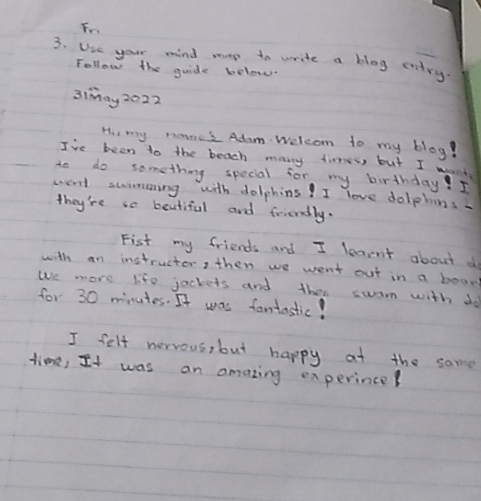 Fr.
3. Use your mind map to write a blog entry.
Follow the guide below.
31th May 2022
Hi, my name's Adam. Welcom to my blog!
I've been to the beach many times, but I
to do something special for my birthday! I
went swimming with dolphins! I love dolphins -
they're so beutiful and friendly.
Fist my friends and I learnt about
with an instructor, then we went out in a boat
We more life jackets and then swam with
for 30 minutes. It was fantastic!
I felt nervous, but happy at the same
time, It was an amazing experince!